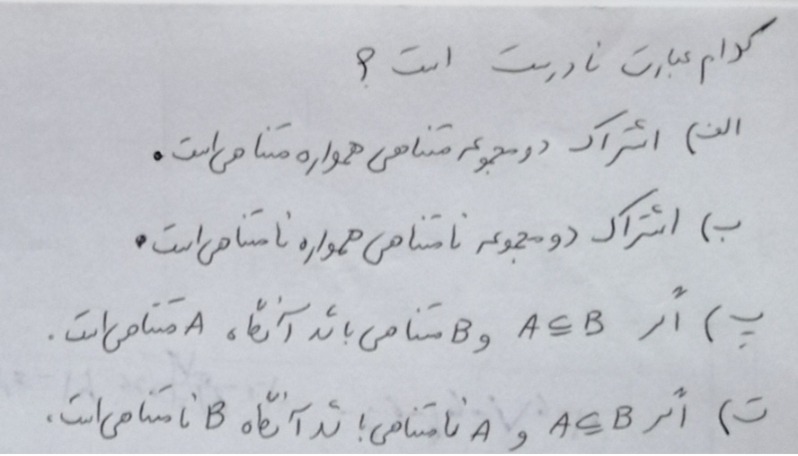 کدام عبارت نادرست است ؟
الف) اشتراک دو مجموعه متناهی همواره متناهی است.
ب) اشتراک دو مجموعه نامتناهی همواره نامتناهی است.
پ) اگر A ⊆ B و B متناهی باشد آنگاه A متناهی است.
ت) اگر A ⊆ B و A نامتناهی باشد آنگاه B نامتناهی است.